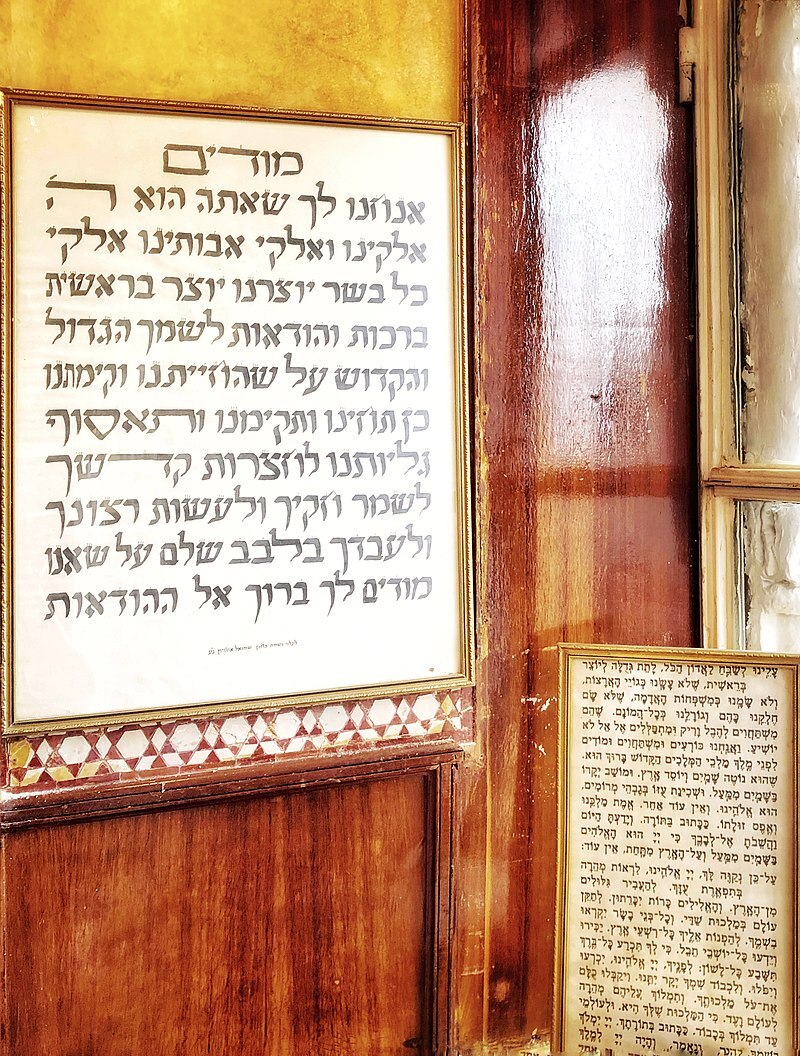 מודים
אנוזנו לך שאתה הוא ה'
אלקינו ואלקי אבותינו אלקי
כל בשר יוצרנו יוצר בראשית
ברכות והודאות לשמך הגדול
והקדוש על שהחייתנו וקימתנו
כן תחזינו ותקימנו ותאסוף
גליותנו לחצרות קדשך
לשמר חקיך ולעשות רצונך
ולעבדך בלבב שלם על שאנו
מודים לך ברוך אל ההודאות
עָלֵינוּ לְשַׁבֵּחַ לַאֲדוֹן הַכֹּל, לָתֵת גְּדֻלָּה לְיוֹצֵר
בְּרֵאשִׁית, שֶׁלֹּא עָשָׂנוּ כְּגוֹיֵי הָאֲרָצוֹת,
וְלֹא שָׂמָנוּ כְּמִשְׁפְּחוֹת הָאֲדָמָה, שֶׁלֹּא שָׂם
חֶלְקֵנוּ כָּהֶם וְגוֹרָלֵנוּ כְּכָל־הֲמוֹנָם. שֶׁהֵם
מִשְׁתַּחֲוִים לְהֶבֶל וָרִיק וּמִתְפַּלְּלִים אֶל אֵל לֹא
יוֹשִׁיעַ. וַאֲנַחְנוּ כּוֹרְעִים וּמִשְׁתַּחֲוִים וּמוֹדִים
לִפְנֵי מֶלֶךְ מַלְכֵי הַמְּלָכִים הַקָּדוֹשׁ בָּרוּךְ הוּא.
שֶׁהוּא נוֹטֶה שָׁמַיִם וְיוֹסֵד אָרֶץ. וּמוֹשַׁב יְקָרוֹ
בַּשָּׁמַיִם מִמַּעַל. וּשְׁכִינַת עֻזּוֹ בְּגָבְהֵי מְרוֹמִים.
הוּא אֱלֹהֵינוּ. וְאֵין עוֹד אַחֵר. אֱמֶת מַלְכֵּנוּ
וְאֶפֶס זוּלָתוֹ. כַּכָּתוּב בַּתּוֹרָה. וְיָדַעְתָּ הַיּוֹם
וַהֲשֵׁבֹתָ אֶל־לְבָבֶךָ כִּי יְיָ הוּא הָאֱלֹהִים
בַּשָּׁמַיִם מִמַּעַל וְעַל־הָאָרֶץ מִתָּחַת, אֵין עוֹד:
עַל־כֵּן נְקַוֶּה לָּךְ, יְיָ אֱלֹהֵינוּ, לִרְאוֹת מְהֵרָה
בְּתִפְאֶרֶת עֻזָּךְ. לְהַעֲבִיר גִּלּוּלִים
מִן־הָאָרֶץ. וְהָאֱלִילִים כָּרוֹת יִכָּרֵתוּן. לְתַקֵּן
עוֹלָם בְּמַלְכוּת שַׁדַּי. וְכָל־בְּנֵי בָשָׂר יִקְרְאוּ
בִשְׁמֶךָ. לְהַפְנוֹת אֵלֶיךָ כָּל־רִשְׁעֵי אָרֶץ. יַכִּירוּ
וְיֵדְעוּ כָּל־יוֹשְׁבֵי תֵבֵל. כִּי לְךָ תִּכְרַע כָּל־בֶּרֶךְ
תִּשָּׁבַע כָּל־לָשׁוֹן: לְפָנֶיךָ, יְיָ אֱלֹהֵינוּ, יִכְרְעוּ
וְיִפֹּלוּ. וְלִכְבוֹד שִׁמְךָ יְקָר יִתֵּנוּ. וִיקַבְּלוּ כֻלָּם
אֶת־עֹל מַלְכוּתֶךָ. וְתִמְלוֹךְ עֲלֵיהֶם מְהֵרָה
לְעוֹלָם וָעֶד. כִּי הַמַּלְכוּת שֶׁלְּךָ הִיא. וּלְעוֹלְמֵי
עַד תִּמְלוֹךְ בְּכָבוֹד. כַּכָּתוּב בְּתוֹרָתֶךָ. יְיָ יִמְלֹךְ
וְנֶאֱמַר, וְהָיָה יְיָ לְמֶלֶךְ